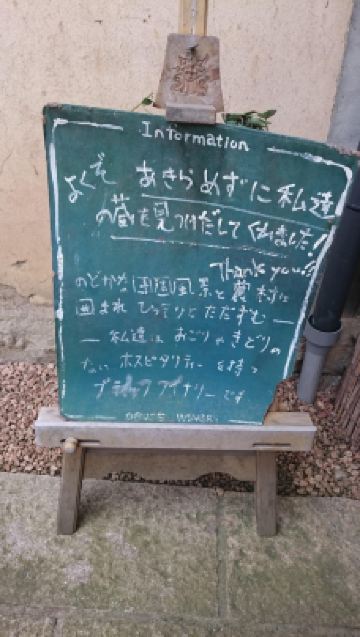 Information
よくぞ あきらめずに私達
の蔵を見つけだしてくれました!
Thank you!!
のどかな田園風景と農村に
囲まれ ひっそりとたたずむ ―
― 私達は おごりやきどりの
ない ホスピタリティーを持つ
ブティックワイナリーです
WINERY